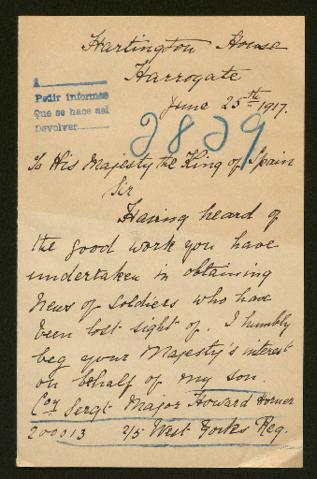 Hartington House
Harrogate
June 25th 1917.
A
Pedir informes
Que se hace asi
Devolver
2829
To His Majesty the King of Spain
Sir
Having heard of
the good work you have
undertaken in obtaining
News of Soldiers who have
been lost sight of. I humbly
beg your Majesty's interest
on behalf of my son.
Coy Sergt Major Howard Horner
200013 2/5 West Yorks Reg.